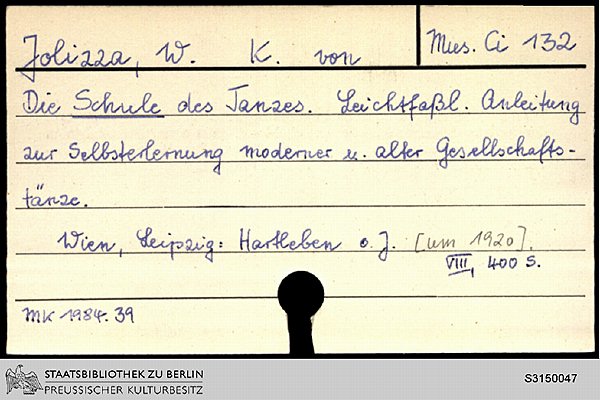 Jolizza, W. K. von
Mus. Ci 132
Die Schule des Tanzes. Leichtfaßl. Anleitung
zur Selbsterlernung moderner u. alter Gesellschafts-
tänze.
Wien, Leipzig: Hartleben o. J. [um 1920].
VIII, 400 S.
MK 1984.39
STAATSBIBLIOTHEK ZU BERLIN
PREUSSISCHER KULTURBESITZ
S3150047